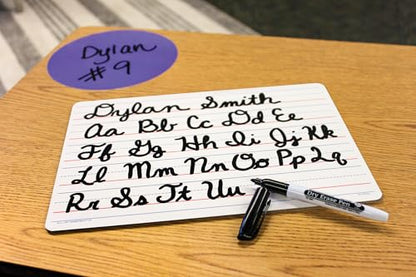 Dylan
#9
Dylan Smith
Aa Bb Cc Dd Ee
Ff Gg Hh Ii Jj Kk
Ll Mm Nn Oo Pp Qq
Rr Ss Tt Uu
Dry Erase Pen